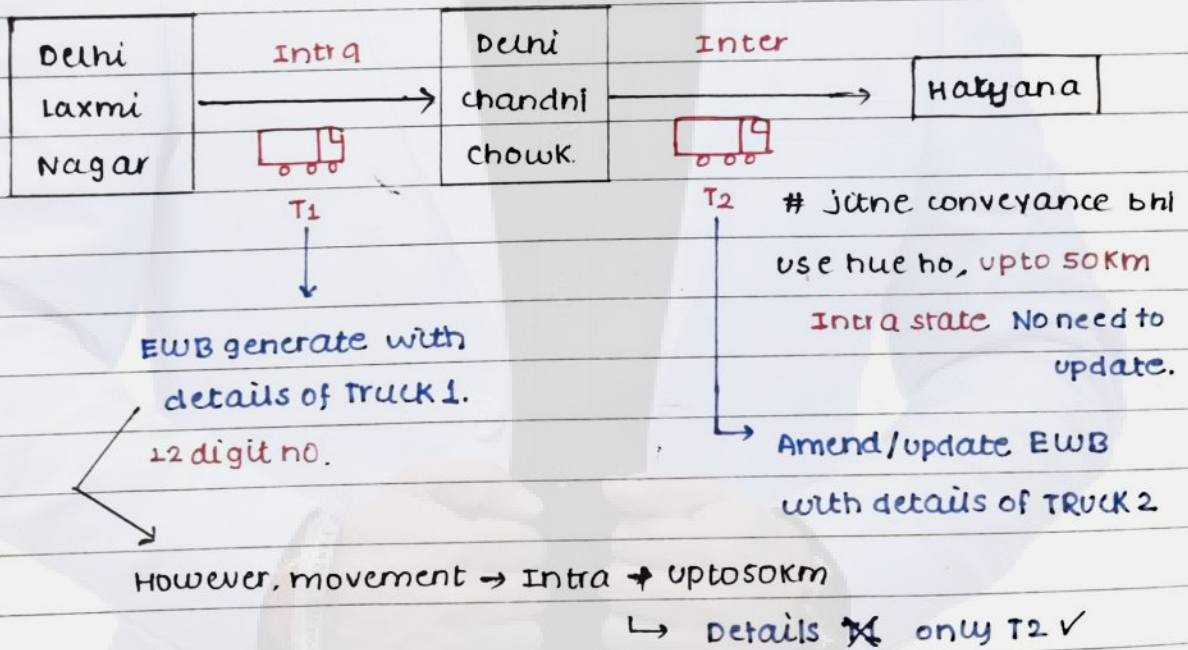 Delhi
Laxmi
Nagar
Intra
Delhi
chandhi
chowk.
Inter
Haryana
T1
T2
# jitne conveyance bhi
use hue ho, upto 50Km
Intra state No need to
update.
EWB generate with
details of Truck 1.
12 digit no.
Amend/update EWB
with details of TRUCK 2
However, movement → Intra → upto50km
↳ Details T1 only T2 ✓